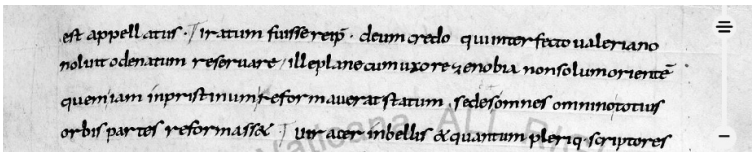 est appellatus · Iratum fuisse reip̄ · deum credo qui interfecto valeriano
noluit odenatum reservare / ille plane cum uxore zenobia non solum orientē
quem iam in pristinum reformaverat statum · sed et omnes omnino totius
orbis partes reformasset / vir acer in bellis & quantum pleriq· scriptores